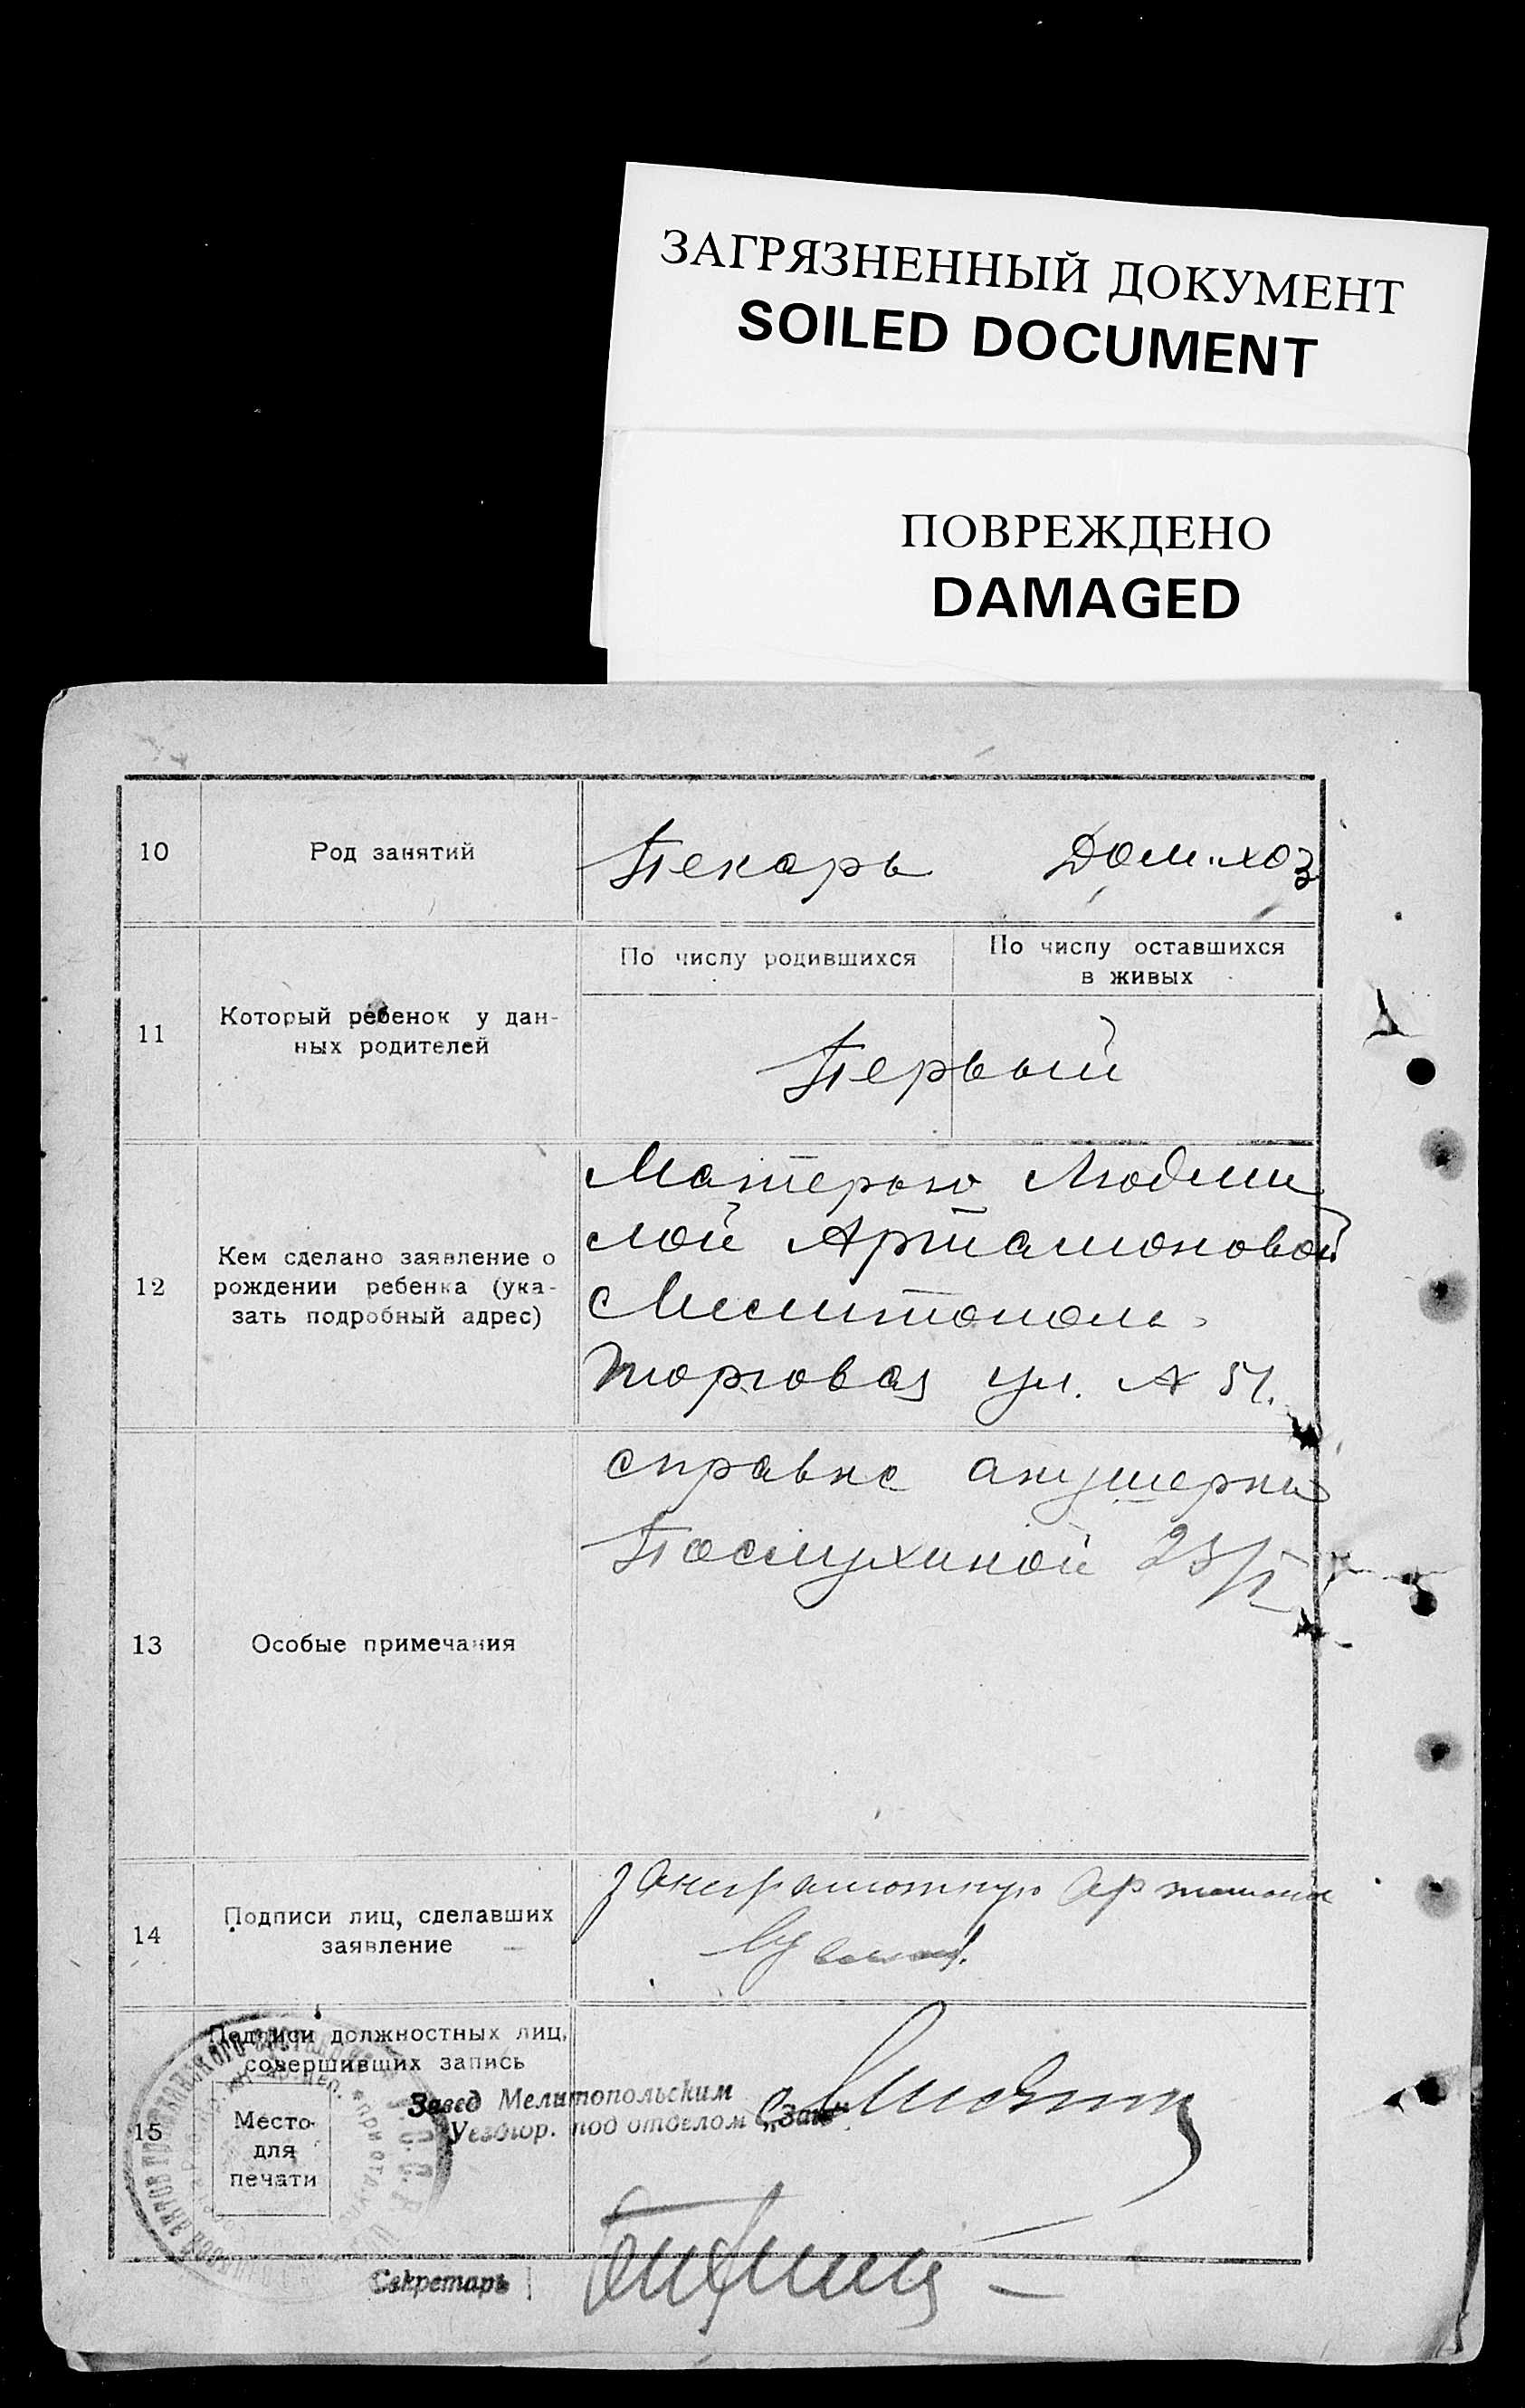 ЗАГРЯЗНЕННЫЙ ДОКУМЕНТ
SOILED DOCUMENT
ПОВРЕЖДЕНО
DAMAGED
10 Род занятий Пекарь Дом. хоз
11 Который ребенок у дан-
ных родителей
По числу родившихся
По числу оставшихся
в живых
Первый
12 Кем сделано заявление о
рождении ребенка (ука-
зать подробный адрес)
Матерью Людми
лой Артамоновой
Мелитополь
Торговая ул. № 51.
13 Особые примечания
справка акушерки
14 Подписи лиц, сделавших
заявление
за неграмотную
15 Подписи должностных лиц,
совершивших запись
Место
для
печати
Завед Мелитопольским
Уездгор. под отделом „Загс"
Секретарь